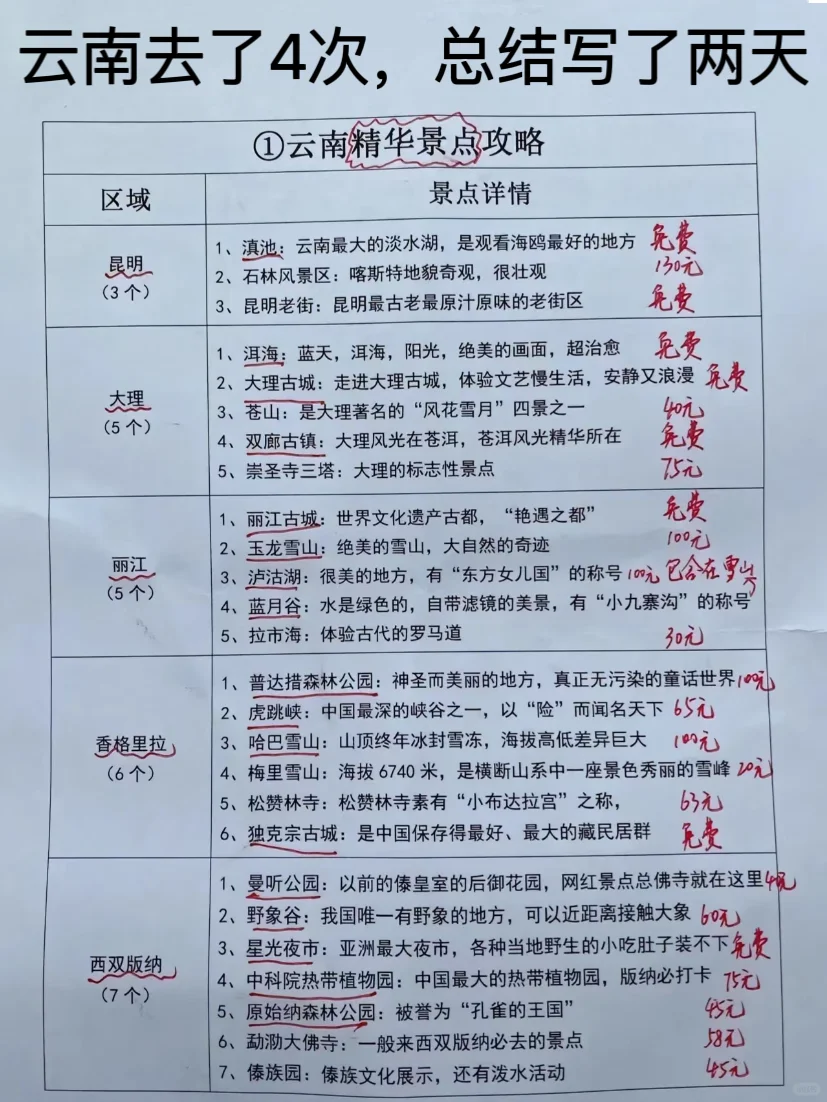 云南去了4次，总结写了两天
①云南精华景点攻略
区域 景点详情
昆明
(3个)
1、滇池：云南最大的淡水湖，是观看海鸥最好的地方 免费
2、石林风景区：喀斯特地貌奇观，很壮观 130元
3、昆明老街：昆明最古老最原汁原味的老街区 免费
大理
(5个)
1、洱海：蓝天，洱海，阳光，绝美的画面，超治愈 免费
2、大理古城：走进大理古城，体验文艺慢生活，安静又浪漫 免费
3、苍山：是大理著名的“风花雪月”四景之一 40元
4、双廊古镇：大理风光在苍洱，苍洱风光精华所在 免费
5、崇圣寺三塔：大理的标志性景点 75元
丽江
(5个)
1、丽江古城：世界文化遗产古都，“艳遇之都” 免费
2、玉龙雪山：绝美的雪山，大自然的奇迹 100元
3、泸沽湖：很美的地方，有“东方女儿国”的称号 100元 已含在雪山
4、蓝月谷：水是绿色的，自带滤镜的美景，有“小九寨沟”的称号
5、拉市海：体验古代的罗马道 30元
香格里拉
(6个)
1、普达措森林公园：神圣而美丽的地方，真正无污染的童话世界 100元
2、虎跳峡：中国最深的峡谷之一，以“险”而闻名天下 65元
3、哈巴雪山：山顶终年冰封雪冻，海拔高低差异巨大 100元
4、梅里雪山：海拔6740米，是横断山系中一座景色秀丽的雪峰 20元
5、松赞林寺：松赞林寺素有“小布达拉宫”之称， 63元
6、独克宗古城：是中国保存得最好、最大的藏民居群 免费
西双版纳
(7个)
1、曼听公园：以前的傣皇室的后御花园，网红景点总佛寺就在这里
2、野象谷：我国唯一有野象的地方，可以近距离接触大象 60元
3、星光夜市：亚洲最大夜市，各种当地野生的小吃肚子装不下 免费
4、中科院热带植物园：中国最大的热带植物园，版纳必打卡 75元
5、原始纳森林公园：被誉为“孔雀的王国” 45元
6、勐泐大佛寺：一般来西双版纳必去的景点 58元
7、傣族园：傣族文化展示，还有泼水活动 45元